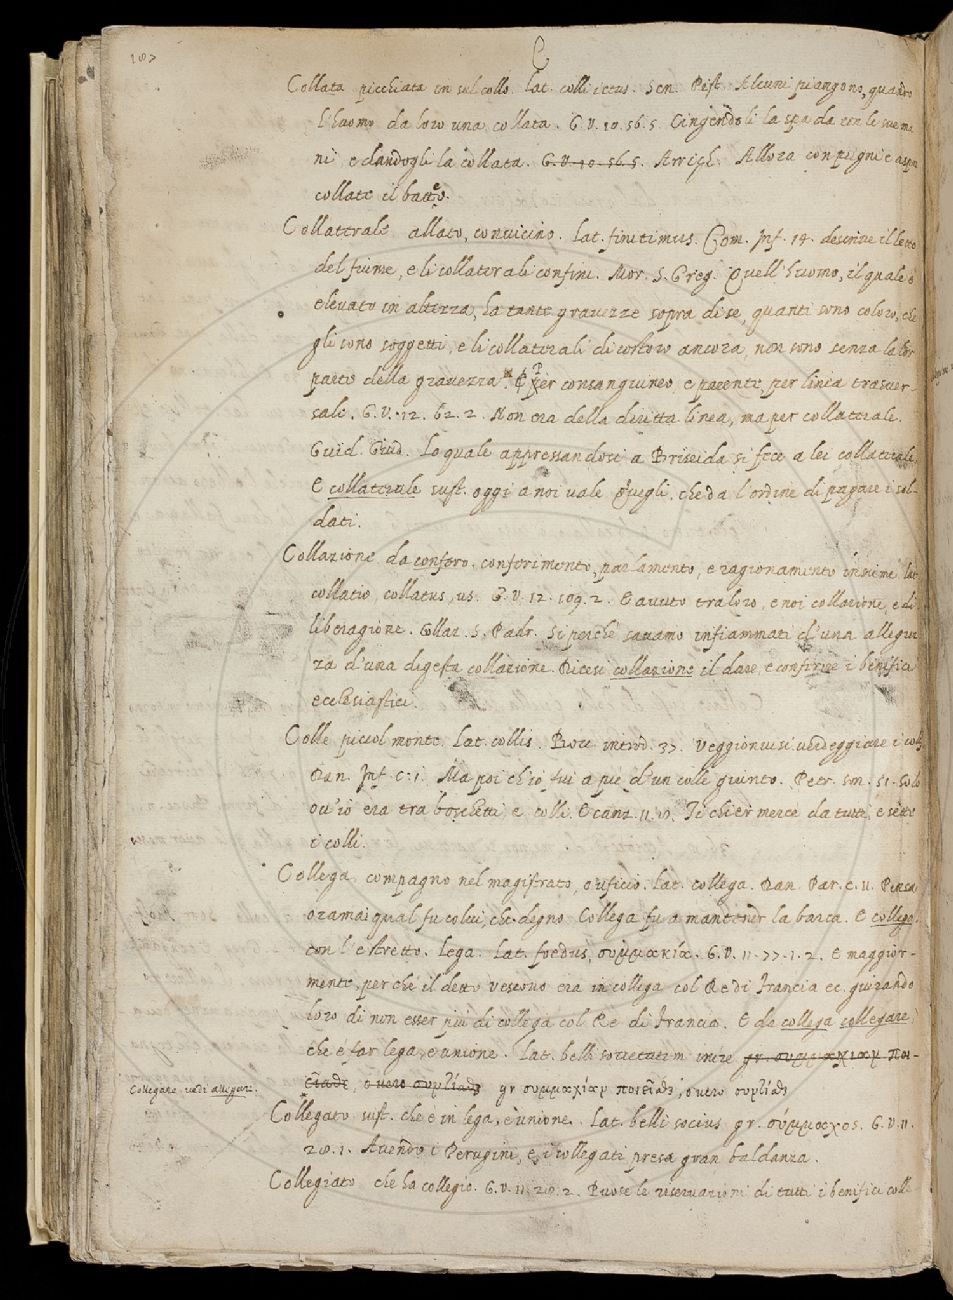 187
C
Collata picchiata in sul collo. Lat. colli ictus. Sen. Pist. Alcuni piangono, quando
l'huomo da loro una collata. G.V. 10. 56. 5. Cingendoli la spada con le sue ma
ni, e dandogli la collata. G.V. 10. 56. 5. Arrigh. Allora con pugni e aspre
collate il batteo.
Collaterale allato, convicino. Lat. finitimus. Com. Inf. 14. descrive il letto
del fiume, e li collaterali confini. Mor. S. Greg. Quell'huomo, il quale è
elevato in altezza, ha tante gravezze sopra di se, quanti sono coloro, che
gli sono soggetti, e li collaterali di costoro ancora, non sono senza la lor
parte della gravezza. E per consanguineo, e parente, per linea trasver-
sale. G.V. 12. 62. 2. Non era della diritta linea, ma per collaterale.
Guid. Giud. Lo quale appressandosi a Briseida si fece a lei collaterale,
E collaterale sust. oggi a noi vale quegli, che da l'ordine di pagare i sol-
dati.
Collazione da confero, conferimento, parlamento, e ragionamento insieme lat.
collatio, collatus, us. G.V. 12. 109. 2. E avuto tra loro, e noi collazione, e di
liberagione. Collaz. S. Padr. Si perche savamo infiammati d'una allegrez
za d'una degesta collazione. Dicesi collazione il dare, e conferire i benifici
ecclesiastici.
Colle piccol monte. Lat. collis. Bocc. introd. 37. Veggionvisi verdeggiare i colli
Dan. Inf. C. 1. Ma poi ch'io fui a piè d'un colle giunto. Petr. son. 51. Solo
ov'io era tra boschetti, e colli. E canz. 11. Ti chier mercè da tutti, e sette
i colli.
Collega compagno nel magistrato, o uficio. Lat. collega. Dan. Par. c. 11. Pensa
oramai qual fu colui, che degno Collega fu a mantener la barca. E collega
con l'e stretto. Lega. Lat. foedus, συμμακία. G.V. 11. 77. 1. 2. E maggior-
mente, perchè il detto Vescovo era in collega col Re di Francia ec. giurando
loro di non esser più di collega col Re di Francia. E da collega collegare,
che è far lega, e unione. Lat. belli societatem inire gr. συμμαχίαν ποι-
εῖσθαι, o vero συντίθεσθαι gr συμμαχίαν ποιεῖσθαι, o vero συντίθεσθαι
Collegare vedi allegare.
Collegato sust. che è in lega, e unione. Lat. belli socius. gr. σύμμαχος. G.V. 11.
20. 1. Avendo i Perugini, e i collegati presa gran baldanza.
Collegiato che ha collegio. G.V. 11. 20. 2. Puose le riservazioni di tutti i benifici colle